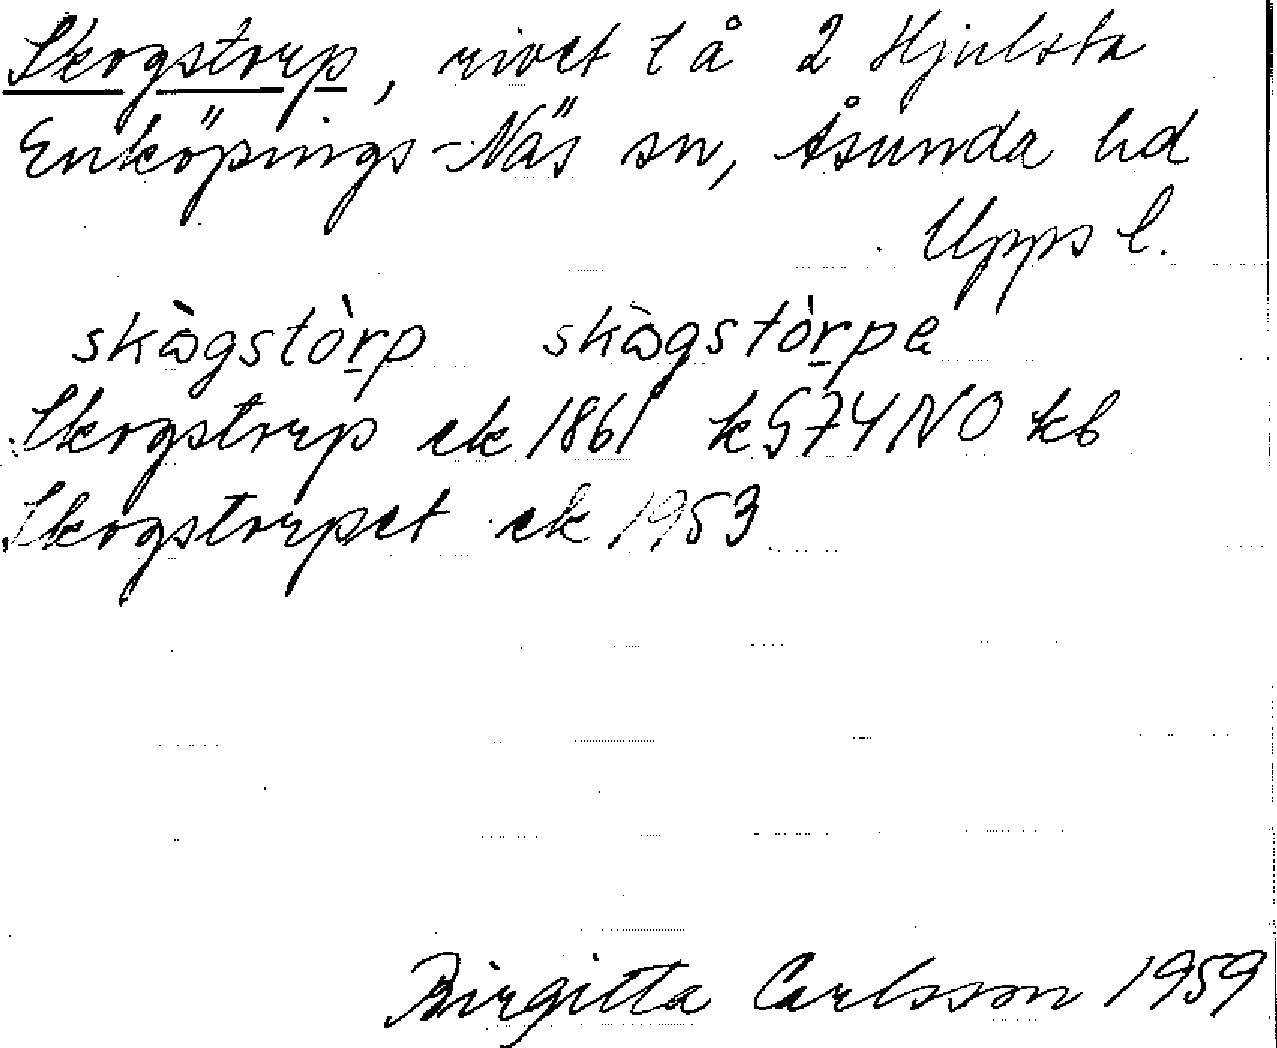 Skogstorp, rivet t å 2 Hjulsta
Enköpings-Näs sn, Åsunda hd
Upps l.
skògstòrp skògstòrpe
Skogstorp ek 1861 k574NO kb
Skogstorpet ek 1953
Birgitta Carlsson 1959